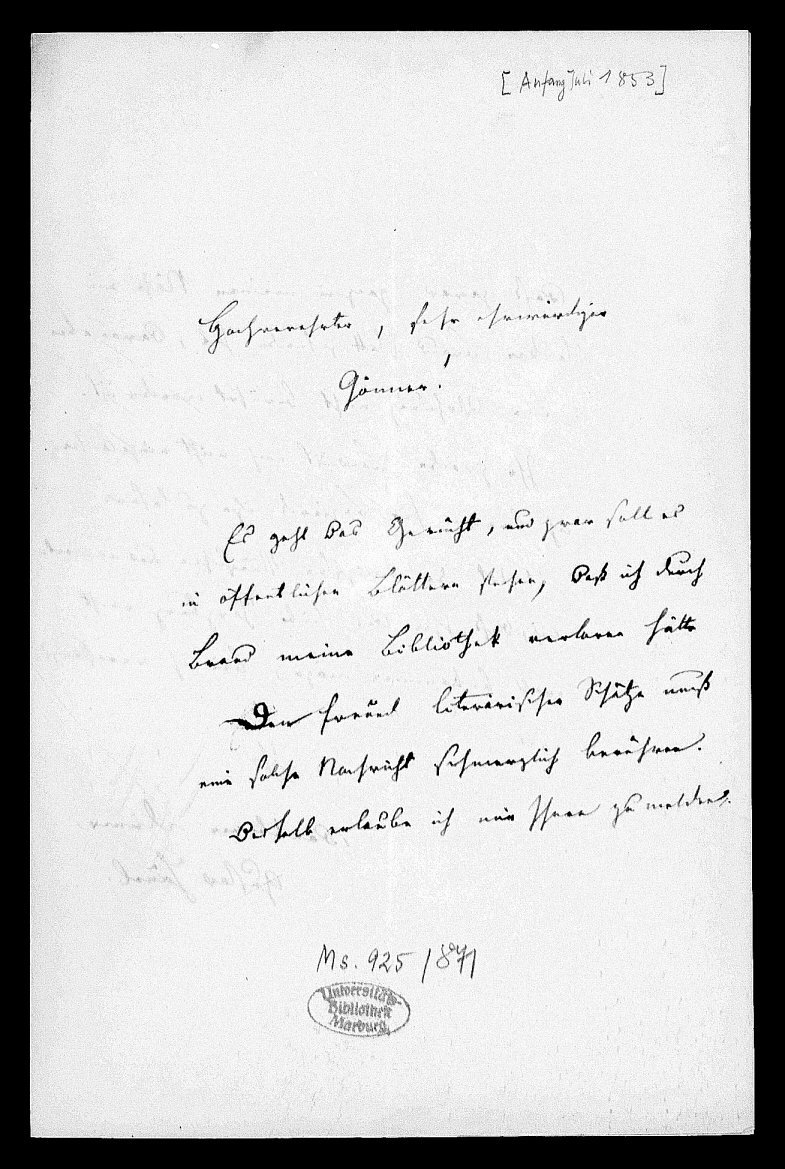 [Anfang Juli 1853]
Hochverehrter, sehr ehrwürdiger
Gönner!
Es geht das Gerücht, und zwar soll es
in öffentlichen Blättern stehen, daß ich durch
Brand meine Bibliothek verloren hätte
Den Freund literärischer Schätze muß
eine solche Nachricht schmerzlich berühren.
Deshalb erlaube ich mir Ihnen zu melden,
Ms. 925/871
Universitäts-
Bibliothek
Marburg